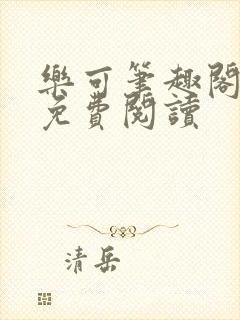 樂可筆趣閣
免費閱讀
清岳